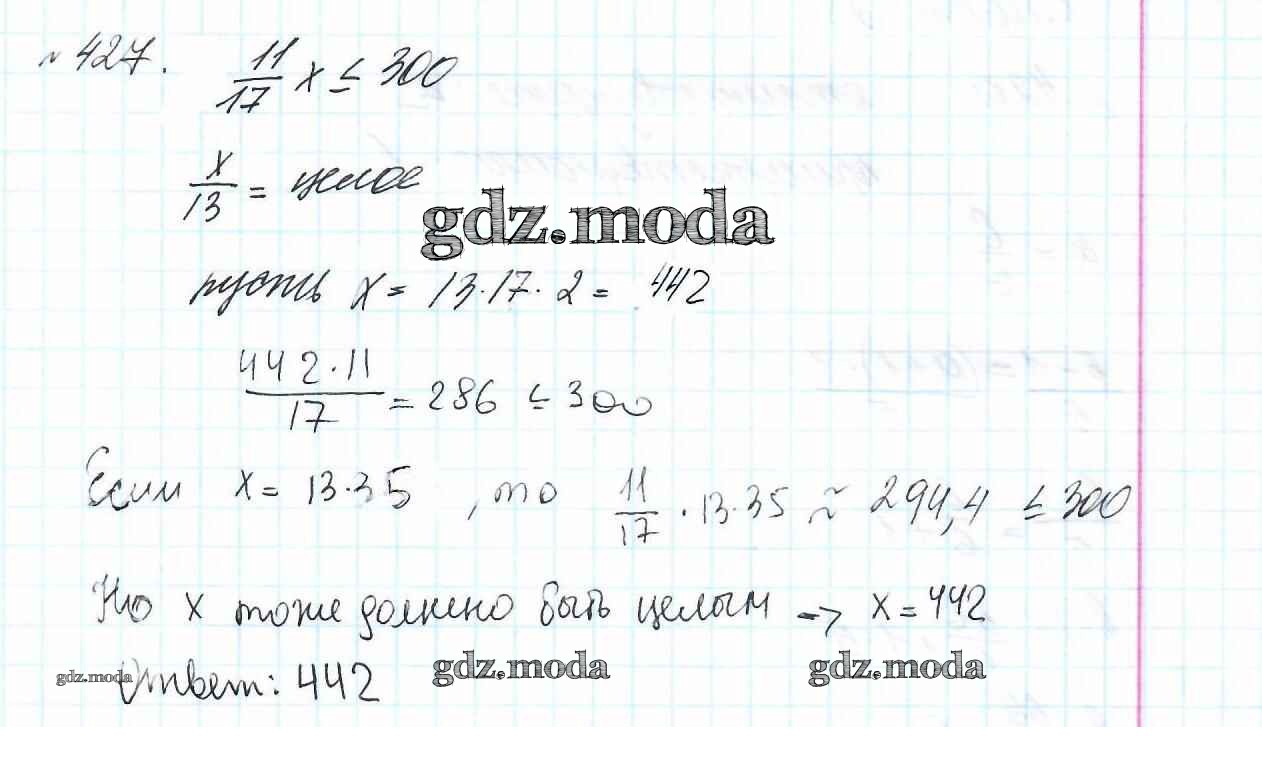 № 427. 11/17 x ≤ 300
x/13 = целое
gdz.moda
пусть x = 13·17·2 = 442
442·11/17 = 286 ≤ 300
Если x = 13·35, то 11/17 · 13·35 ≈ 294,4 ≤ 300
Но x тоже должно быть целым → x = 442
Ответ: 442
gdz.moda gdz.moda gdz.moda